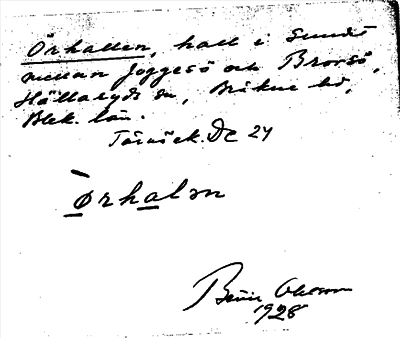 Örhallen, hall i Sundet
mellan Joggesö och Brorsö,
Hällaryds sn, Bräkne hd,
Blek. län.
DC 24
Örhalən
Bengt Olsson
1928